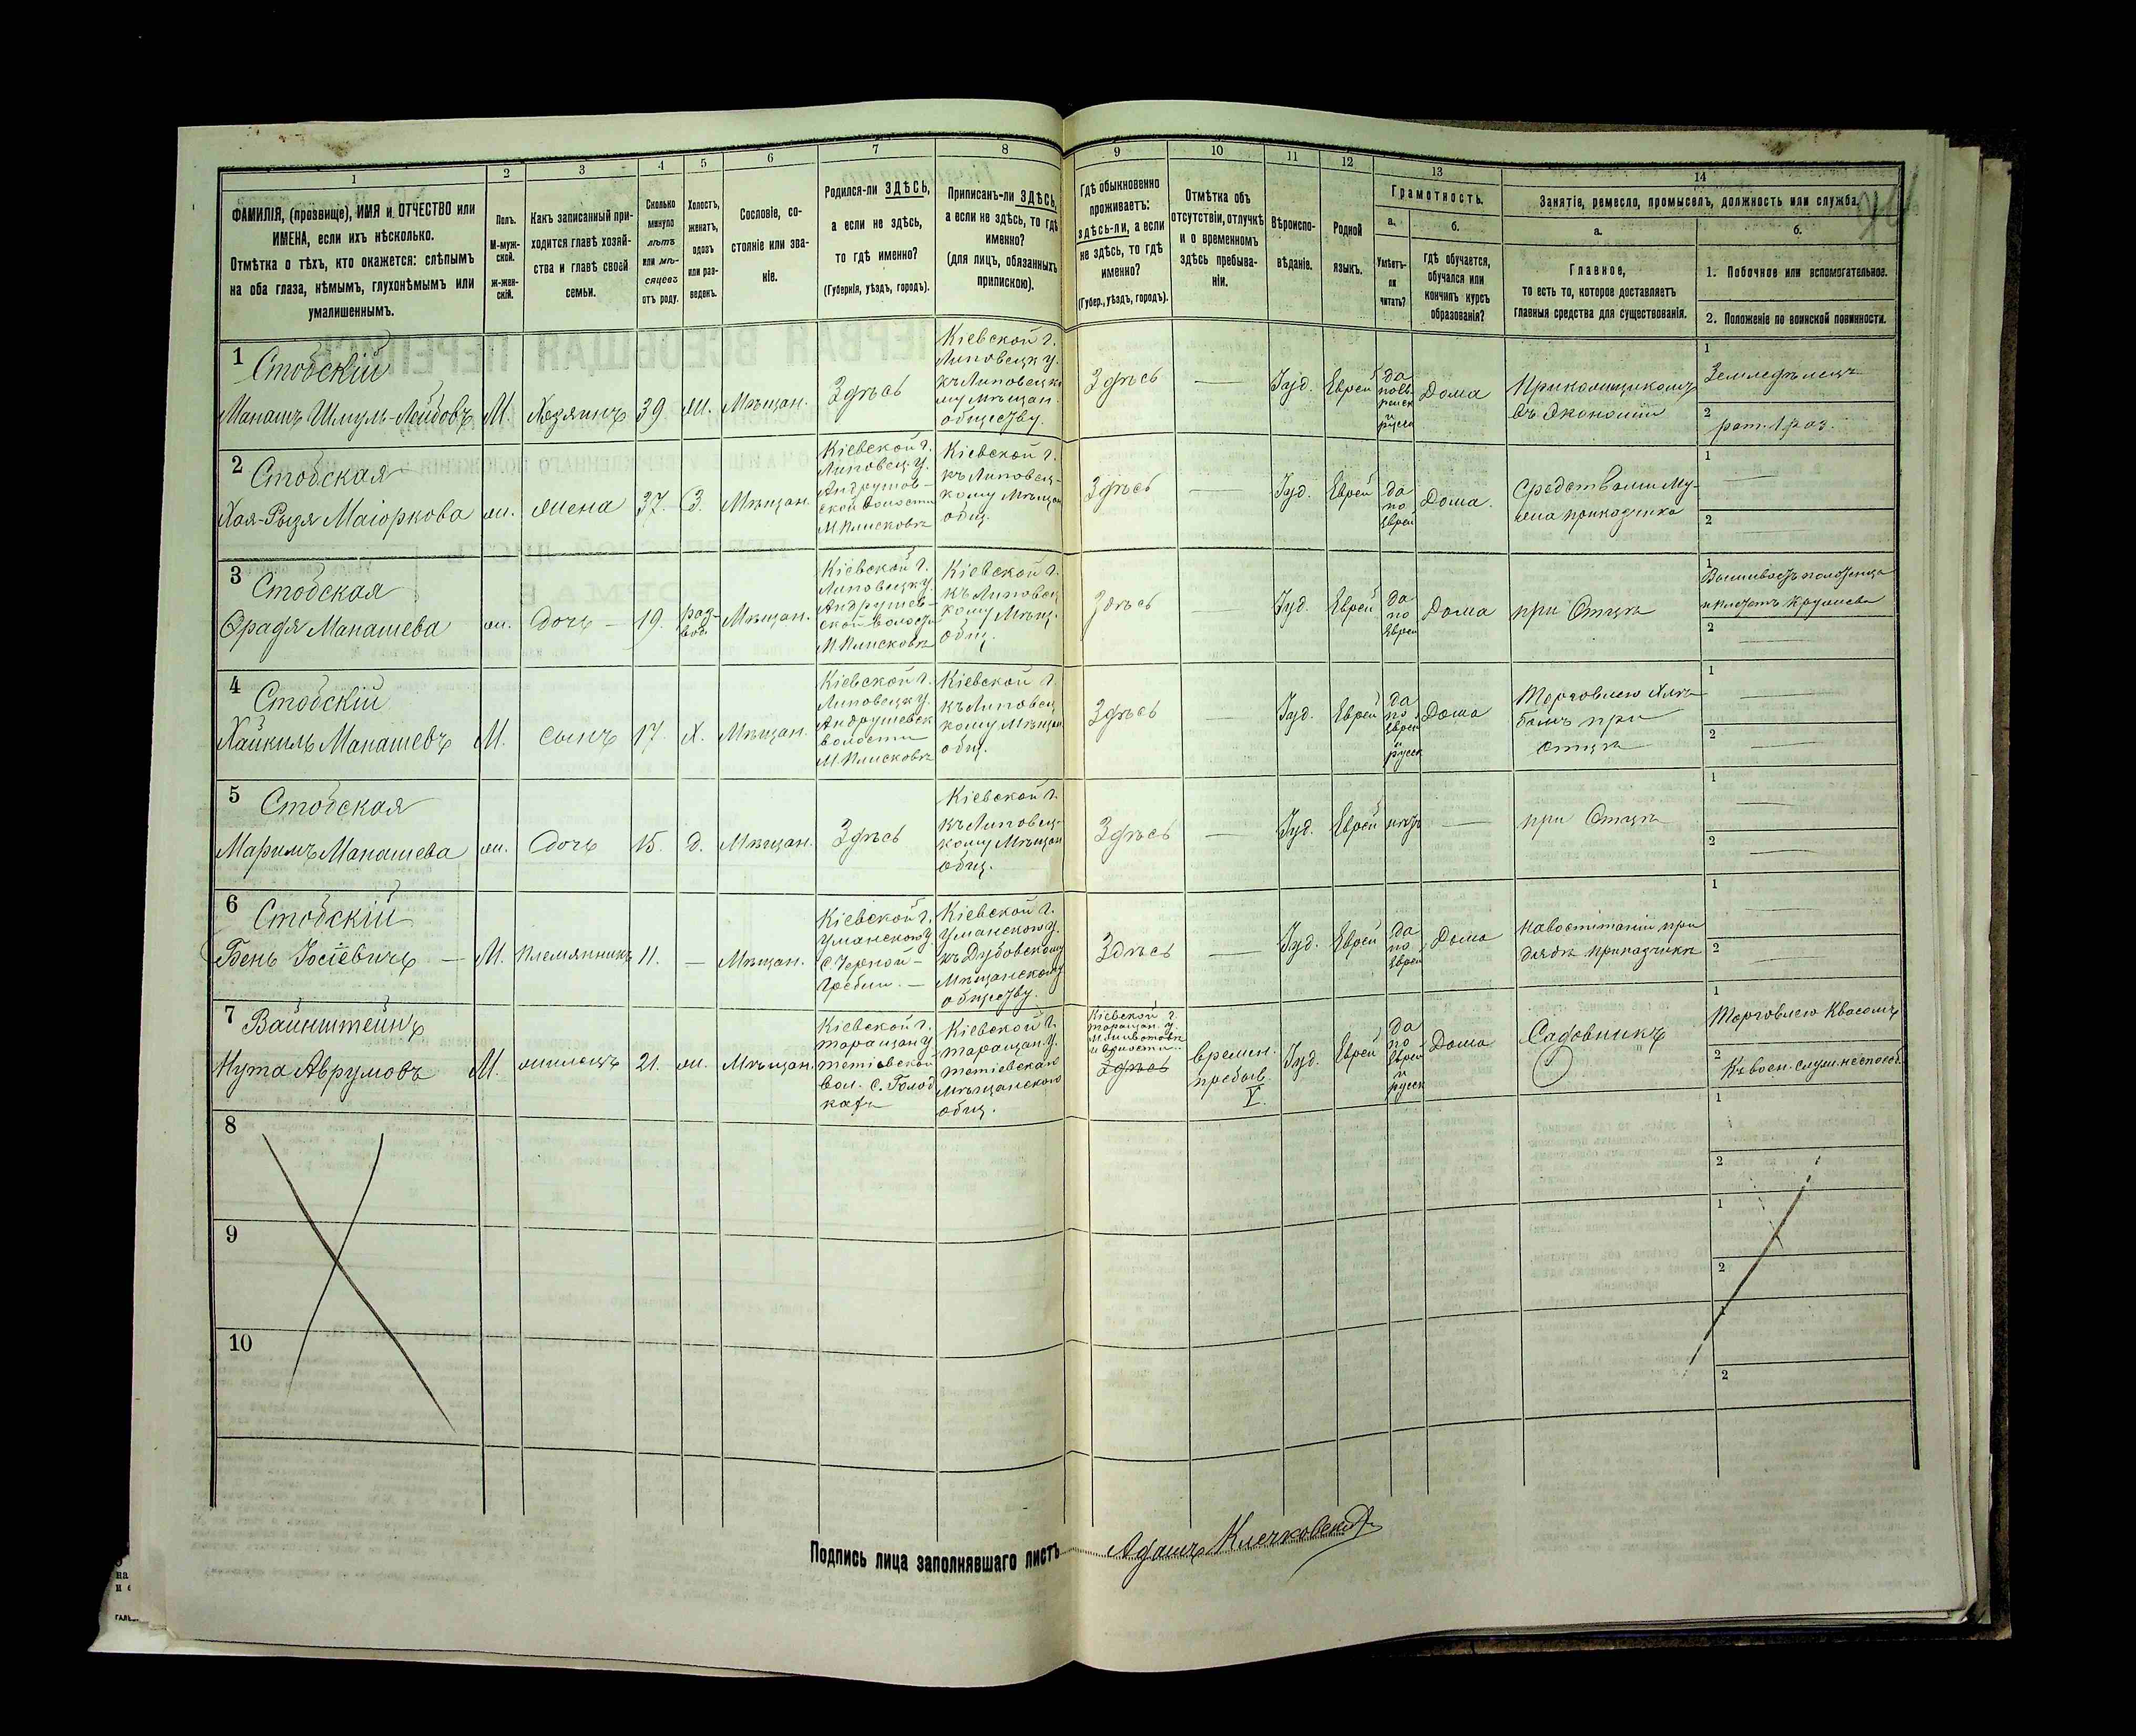 1
2
3
4
5
6
7
8
9
10
11
12
13
14
ФАМИЛІЯ, (прозвище), ИМЯ и ОТЧЕСТВО или
ИМЕНА, если ихъ нѣсколько.
Отмѣтка о тѣхъ, кто окажется: слѣпымъ
на оба глаза, нѣмымъ, глухонѣмымъ или
умалишеннымъ.
Полъ.
М-муж-
ской.
ж-жен-
скій.
Какъ записанный при-
ходится главѣ хозяй-
ства и главѣ своей
семьи.
Сколько
минуло
лѣтъ
или мѣ-
сяцевъ
отъ роду.
Холостъ,
женатъ,
вдовъ
или раз-
веденъ.
Сословіе, со-
стояніе или зва-
ніе.
Родился-ли ЗДѢСЬ,
а если не здѣсь,
то гдѣ именно?
(Губернія, уѣздъ, городъ).
Приписанъ-ли ЗДѢСЬ,
а если не здѣсь, то гдѣ
именно?
(для лицъ, обязанныхъ
припискою).
Гдѣ обыкновенно
проживаетъ:
здѣсь-ли, а если
не здѣсь, то гдѣ
именно?
(Губер., уѣздъ, городъ).
Отмѣтка объ
отсутствіи, отлучкѣ
и о временномъ
здѣсь пребыва-
ніи.
Вѣроиспо-
вѣданіе.
Родной
языкъ.
Грамотность.
а.
Умѣетъ-
ли
читать?
б.
гдѣ обучается,
обучался или
кончилъ курсъ
образованія?
Занятіе, ремесло, промыселъ, должность или служба.
а.
Главное,
то есть то, которое доставляетъ
главныя средства для существованія.
б.
1. Побочное или вспомогательное.
2. Положеніе по воинской повинности.
1
Стобскій
Манашъ Шмуль-Лейбовъ
М.
Хозяинъ
39
ж.
Мѣщан.
Здѣсь
Кіевской г.
Липовецк у.
къ Липовецко
му мѣщан.
обществу.
Здѣсь
—
Іуд.
Еврей
да
по Ев-
рейск
и
русск
Дома
Прикащикомъ
въ Экономіи
1
Земледѣлецъ
2
рат. 1 раз.
2
Стобская
Хая-Рызя Маіоркова
ж.
жена
37.
З.
Мѣщан.
Кіевской г.
Липовец. у.
Андрушов-
ской волости
М. Плисковъ
Кіевской г.
къ Липовец-
кому Мѣщан
общ.
Здѣсь
—
Іуд.
Еврей
да
по
Еврей
Дома.
Средствами му-
жа прикащика
1
—
2
—
3
Стобская
Манашева
ж.
дочь —
19.
раз-
вод.
Мѣщан.
Кіевской г.
Липовецк у
Андрушев-
ской волост
М. Плисковъ
Кіевской г.
къ Липовец
кому Мѣщ.
общ.
Здѣсь
—
Іуд.
Еврей
да
по
Еврей
Дома
при Отцѣ
1
2
—
4
Стобскій
Хайкиль Манашевъ
М.
сынъ
17.
Х.
Мѣщан.
Кіевской г.
Липовецк у.
Андрушевск
волости
М. Плисковъ
Кіевской г.
къ Липовец
кому Мѣщан
общ.
Здѣсь
—
Іуд.
Еврей
да
по
Еврей
и
русск
Дома
Торговлею хлѣ-
бомъ при
отцѣ
1
—
2
—
5
Стобская
Маримъ Манашева
ж.
дочь
15.
д.
Мѣщан.
Здѣсь
Кіевской г.
къ Липовец-
кому Мѣщан
общ.
Здѣсь
—
Іуд.
Еврей
нѣтъ
—
при Отцѣ
1
—
2
—
6
Стобскій
Бень Іосіевичъ —
М.
племянникъ
11.
—
Мѣщан.
Кіевской г.
Уманского у.
с. Черной —
Гребли. —
Кіевской г.
Уманского у.
къ Дубовскому
Мѣщанскому
обществу.
Здѣсь
—
Іуд.
Еврей
да
по
Еврей
Дома
На воспитаніи при
дядѣ прикащикѣ
1
—
2
—
7
Вайнштейнъ
Нута Аврумовъ
М.
жилецъ
21.
ж.
Мѣщан.
Кіевской г.
таращан. у
тетіевской
вол. с. Голод
Кіевской г.
таращан. у.
тетіевская
Мѣщанского
общ.
Кіевской г.
таращан. у.
Здѣсь
времен.
пребыв.
V.
Іуд.
Еврей
да
по
Еврей
и
русск
Дома
Садовникъ
1
Торговлею Квасомъ
2
Къ воен. служ. неспособ.
8
1
2
9
1
2
10
1
2
Подпись лица заполнявшаго листъ
Адамъ Клечковскій